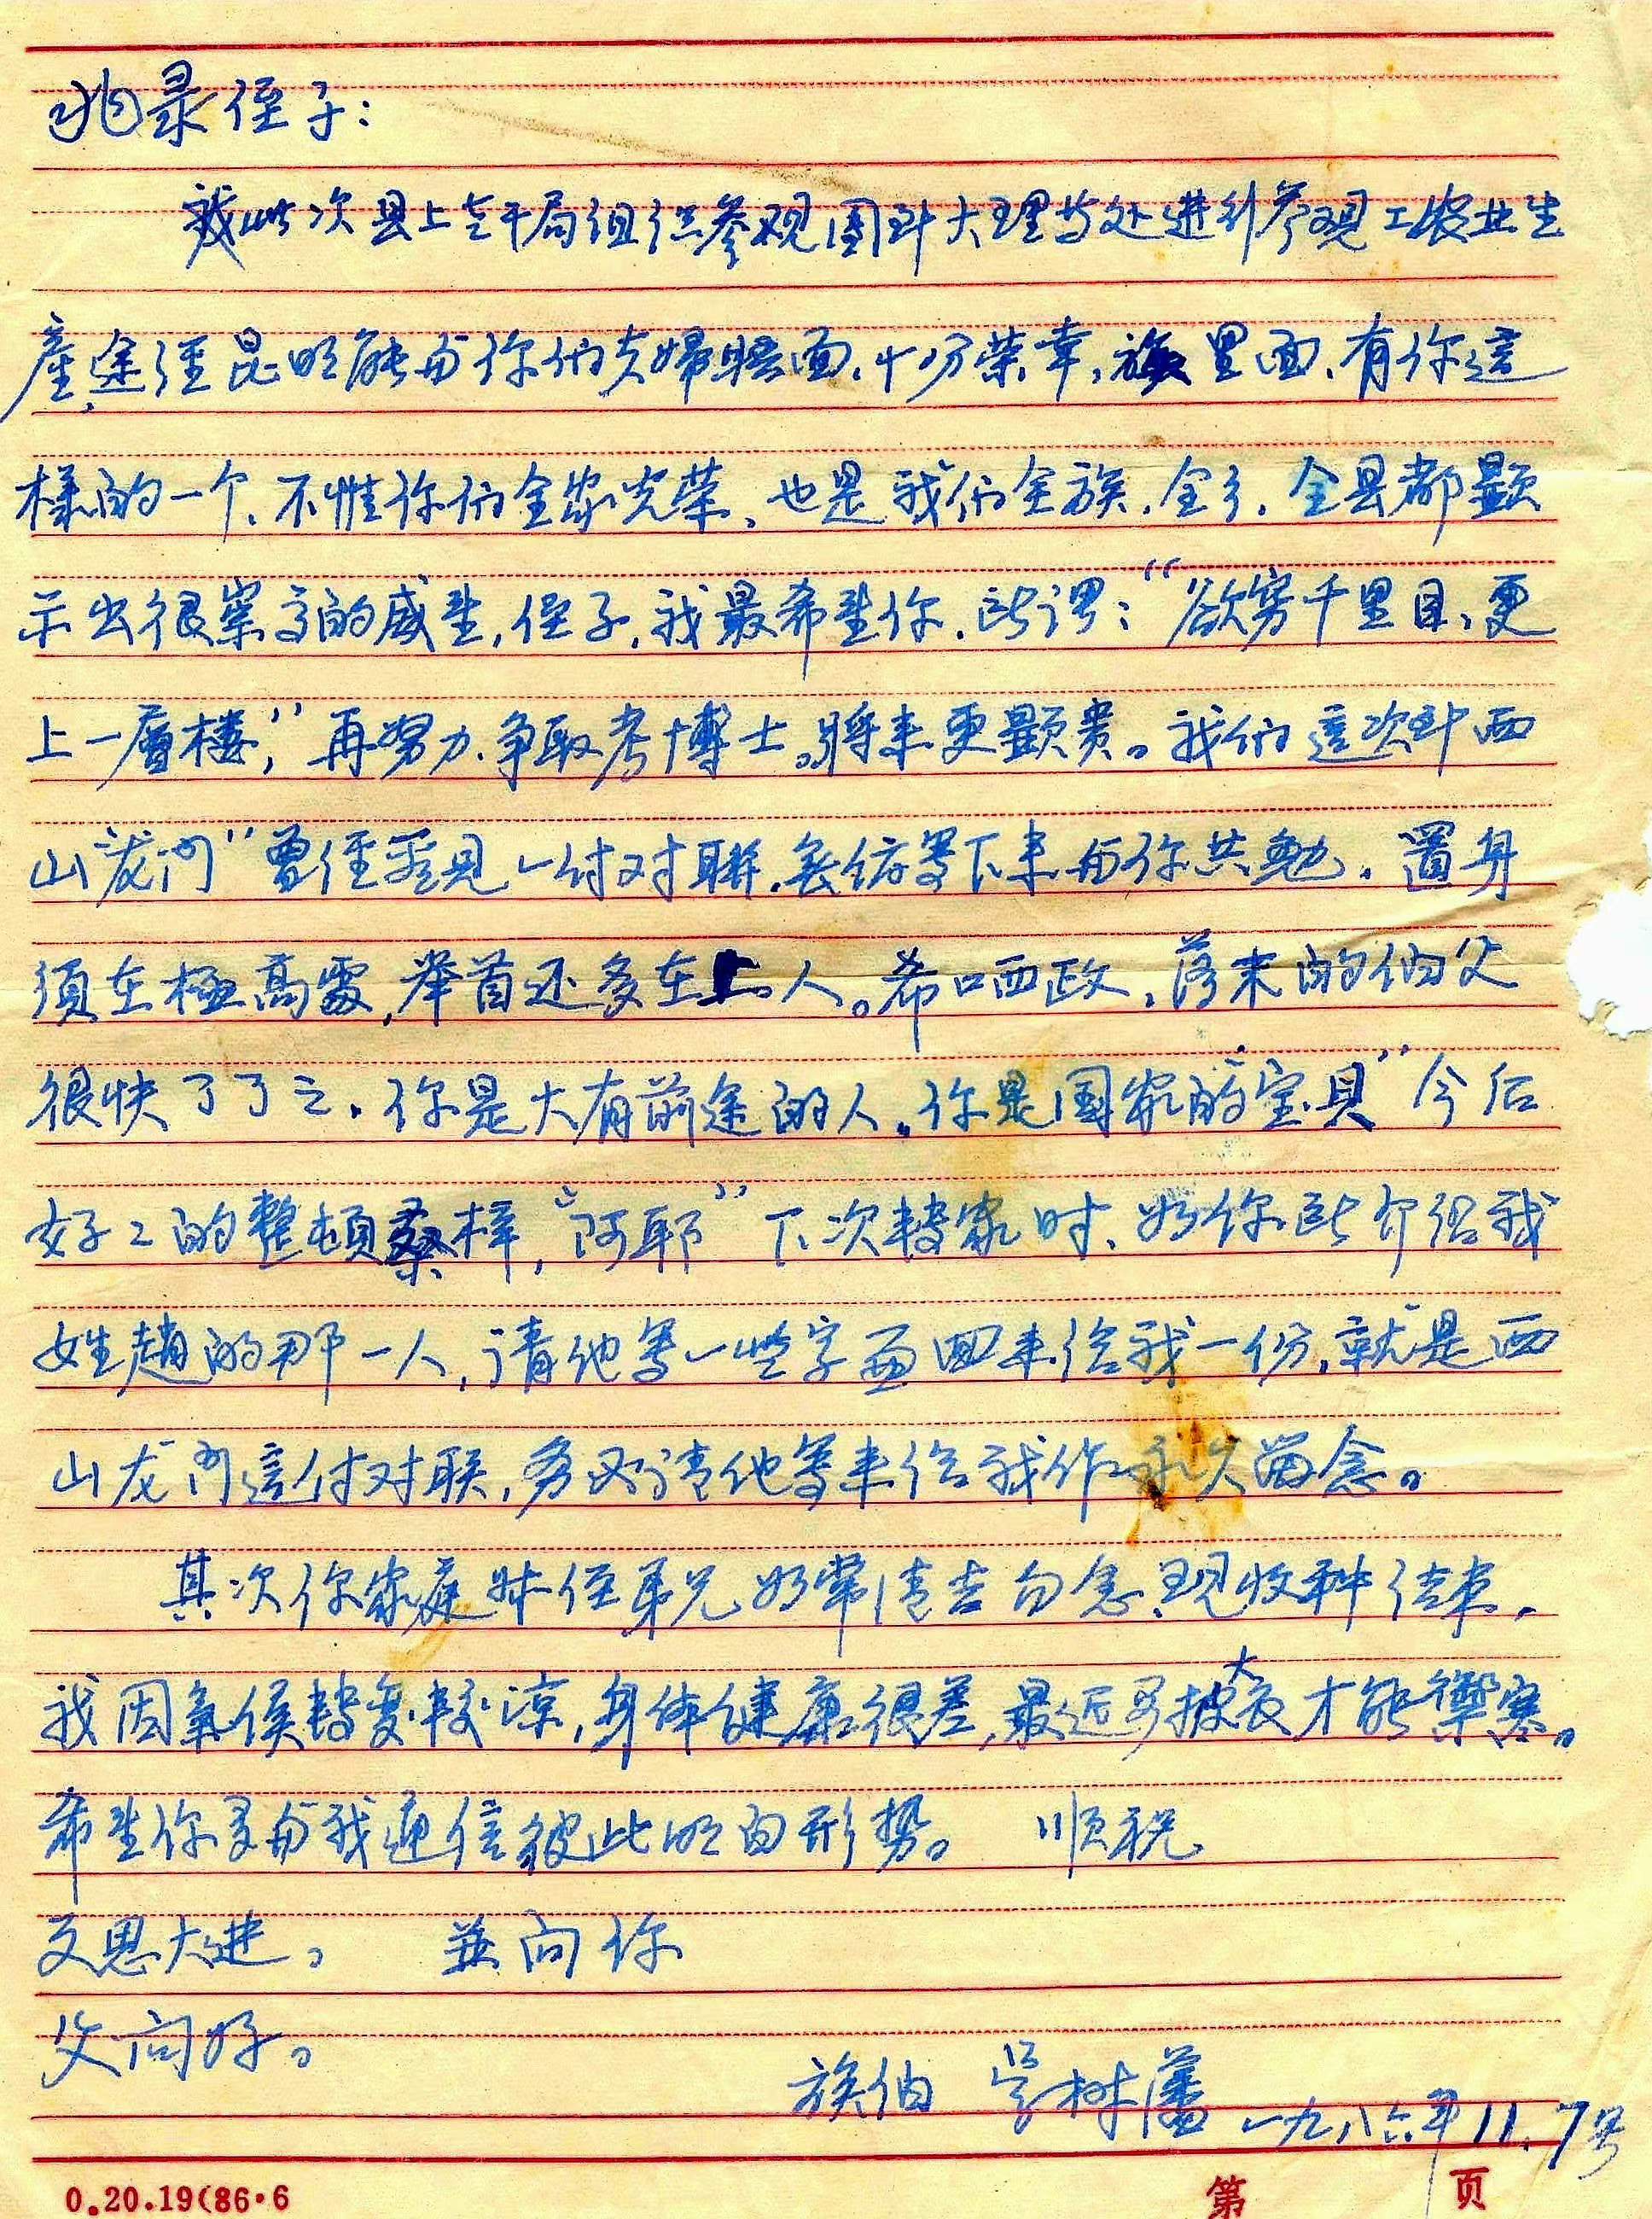 兆录侄子：
我此次县上老干局组织参观团到大理等处进行参观工农业生
産，途径昆明能与你们夫婦晤面，十分荣幸，族里面，有你這
樣的一个，不惟你们全家光荣，也是我们全族，全乡，全县都顯
示出很崇高的威望，侄子，我最希望你，所谓：“欲穷千里目，更
上一層楼，”再努力，争取考博士。將来更顯贵。我们這次到西
山“龙门”曾径看見一付对聯，我经写下来与你共勉。置身
須在極高處，举首还多在上人。希哂政，落末的伯父
很快了了之，你是大有前途的人，你是国家的“宝贝”今后
好好的整頓桑梓，“阿耶”下次轉家时，如你所介绍我
姓趙的那一人，请他写一些字画回来给我一份，就是西
山龙门這付对联，务必请他写来给我作永久留念。
其次你家庭妹侄弟兄如常清吉勿念，现收种结束，
我因氣侯轉变較凉，身体健康很差，最近要披大衣才能禦寒。
希望你多与我通信彼此明白形势。 顺祝
文思大进。 并向你
父问好。
族伯 吴树藩 一九八六年11.7号
0.20.19(86·6
第 页